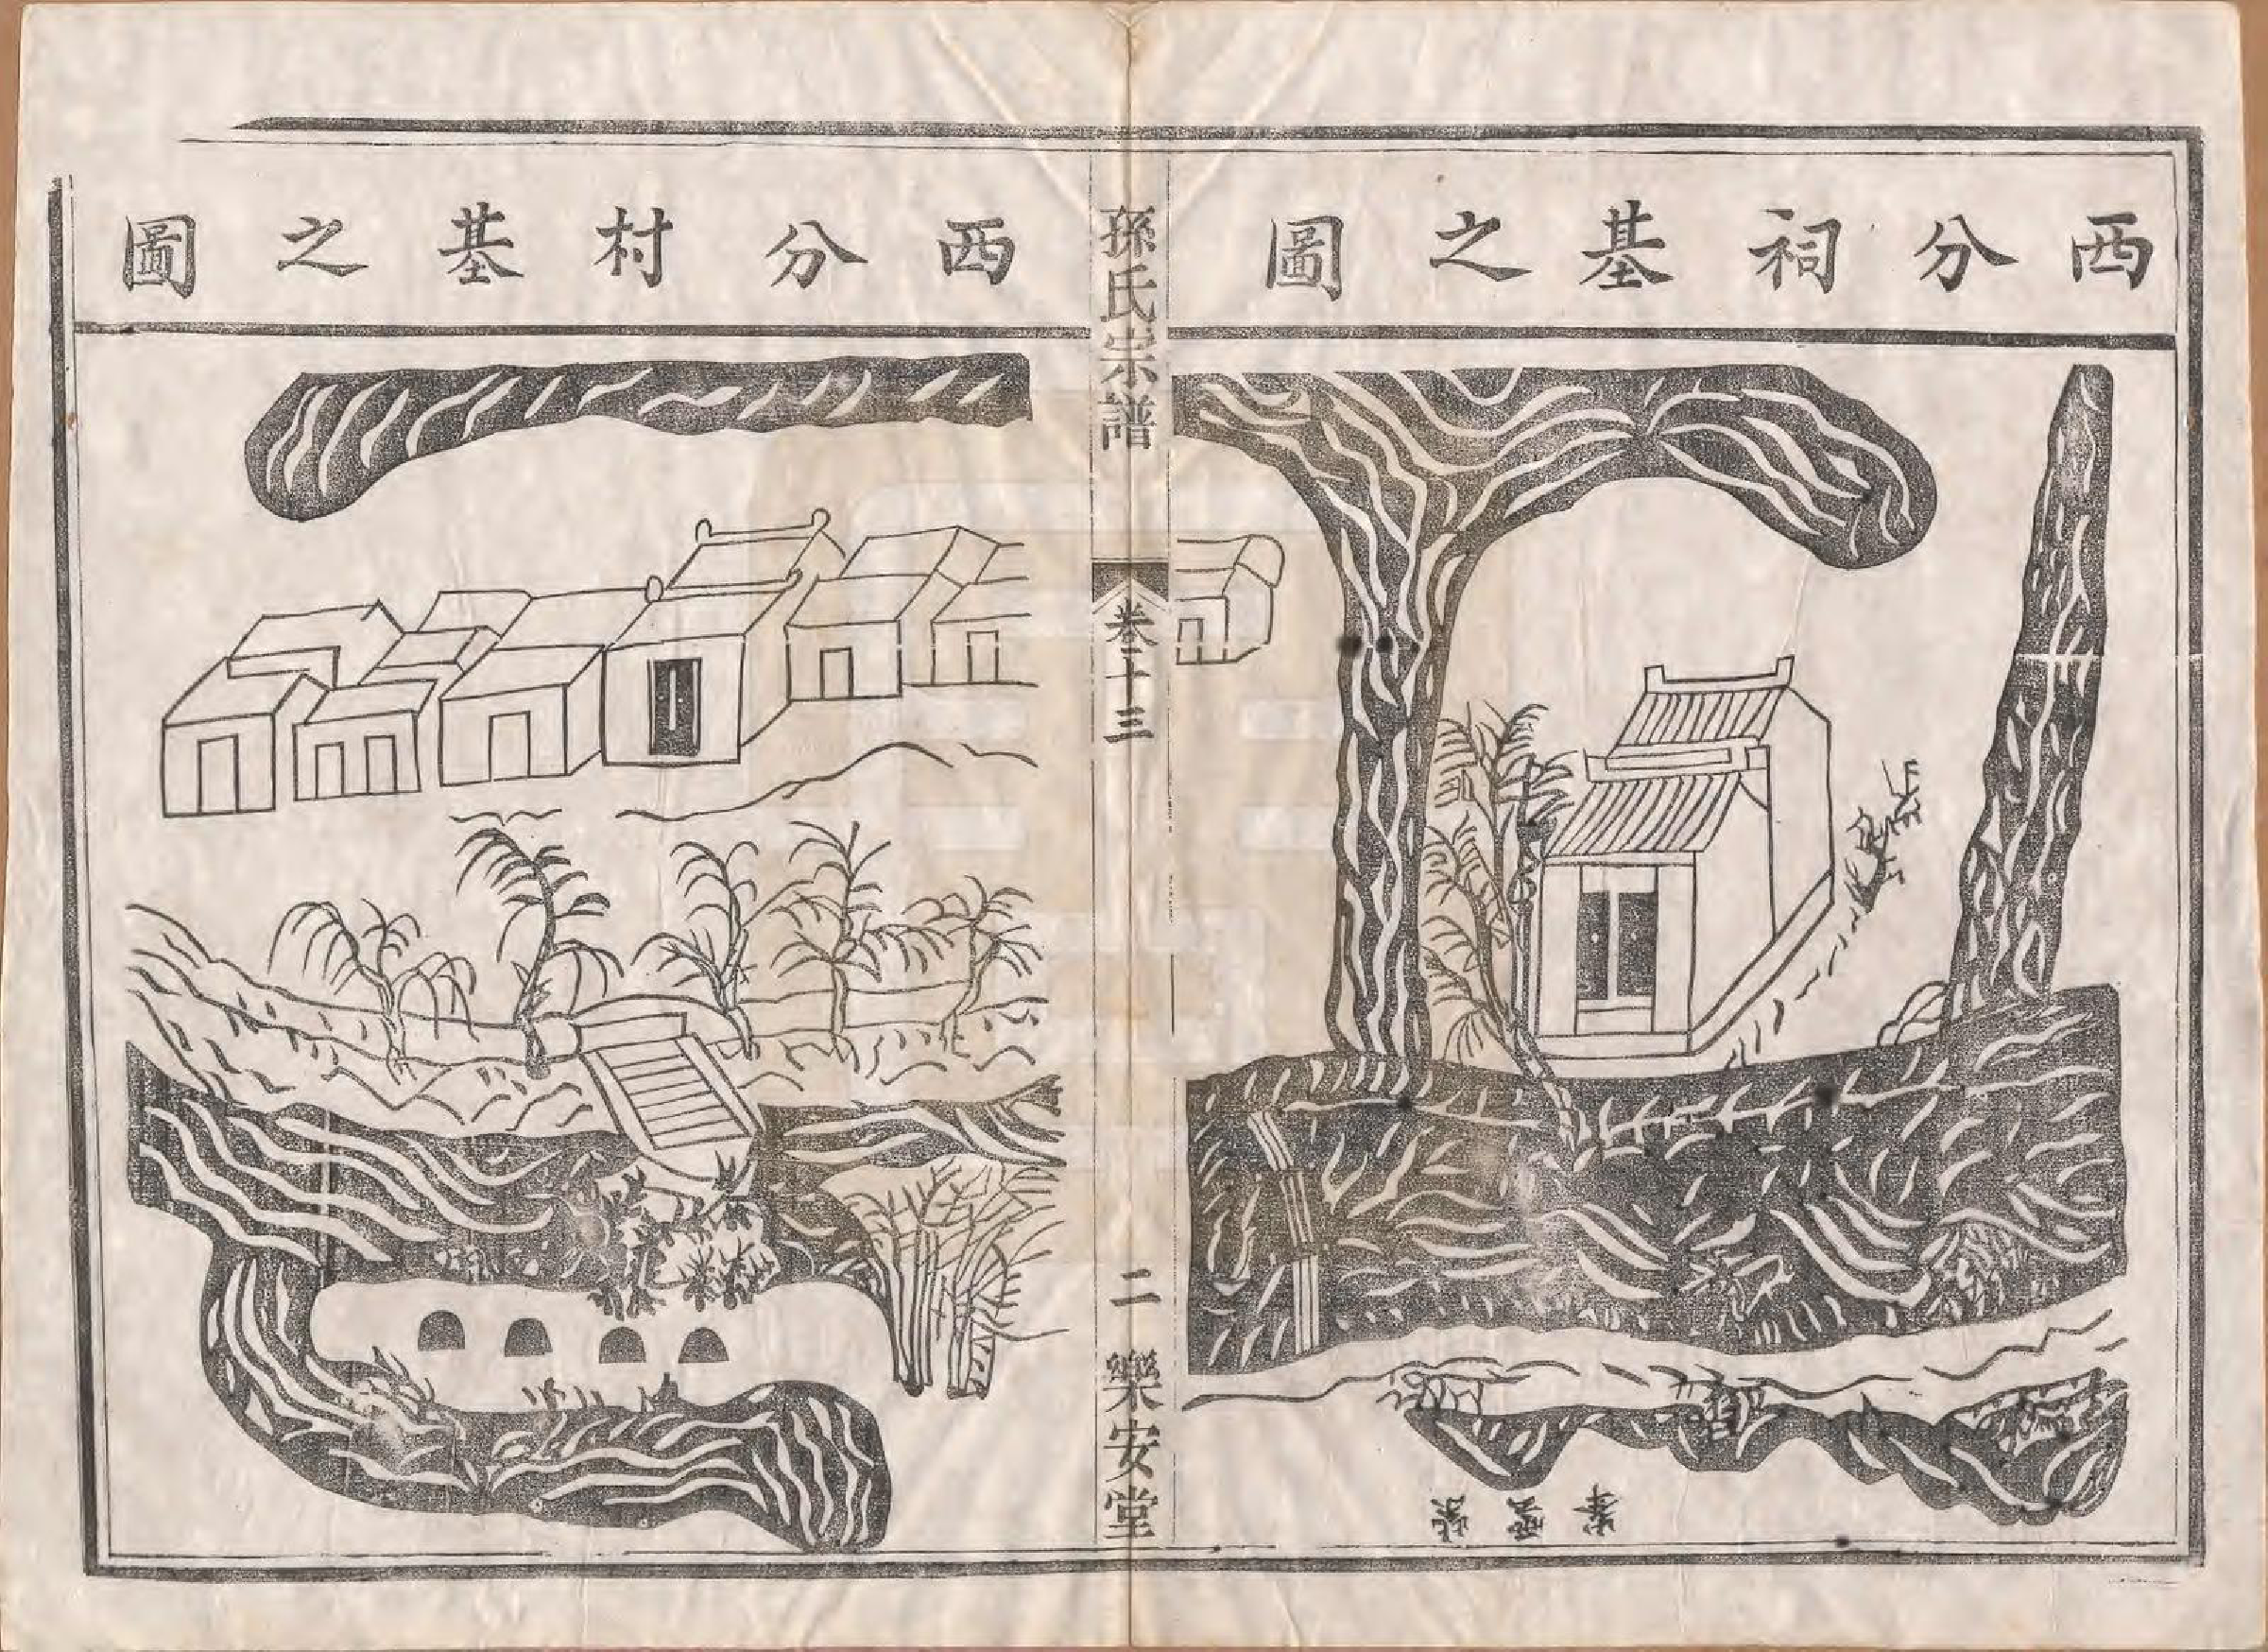 西分祠基之圖
紫雲峯
孫氏宗譜
卷二十三
二
樂安堂
西分村基之圖